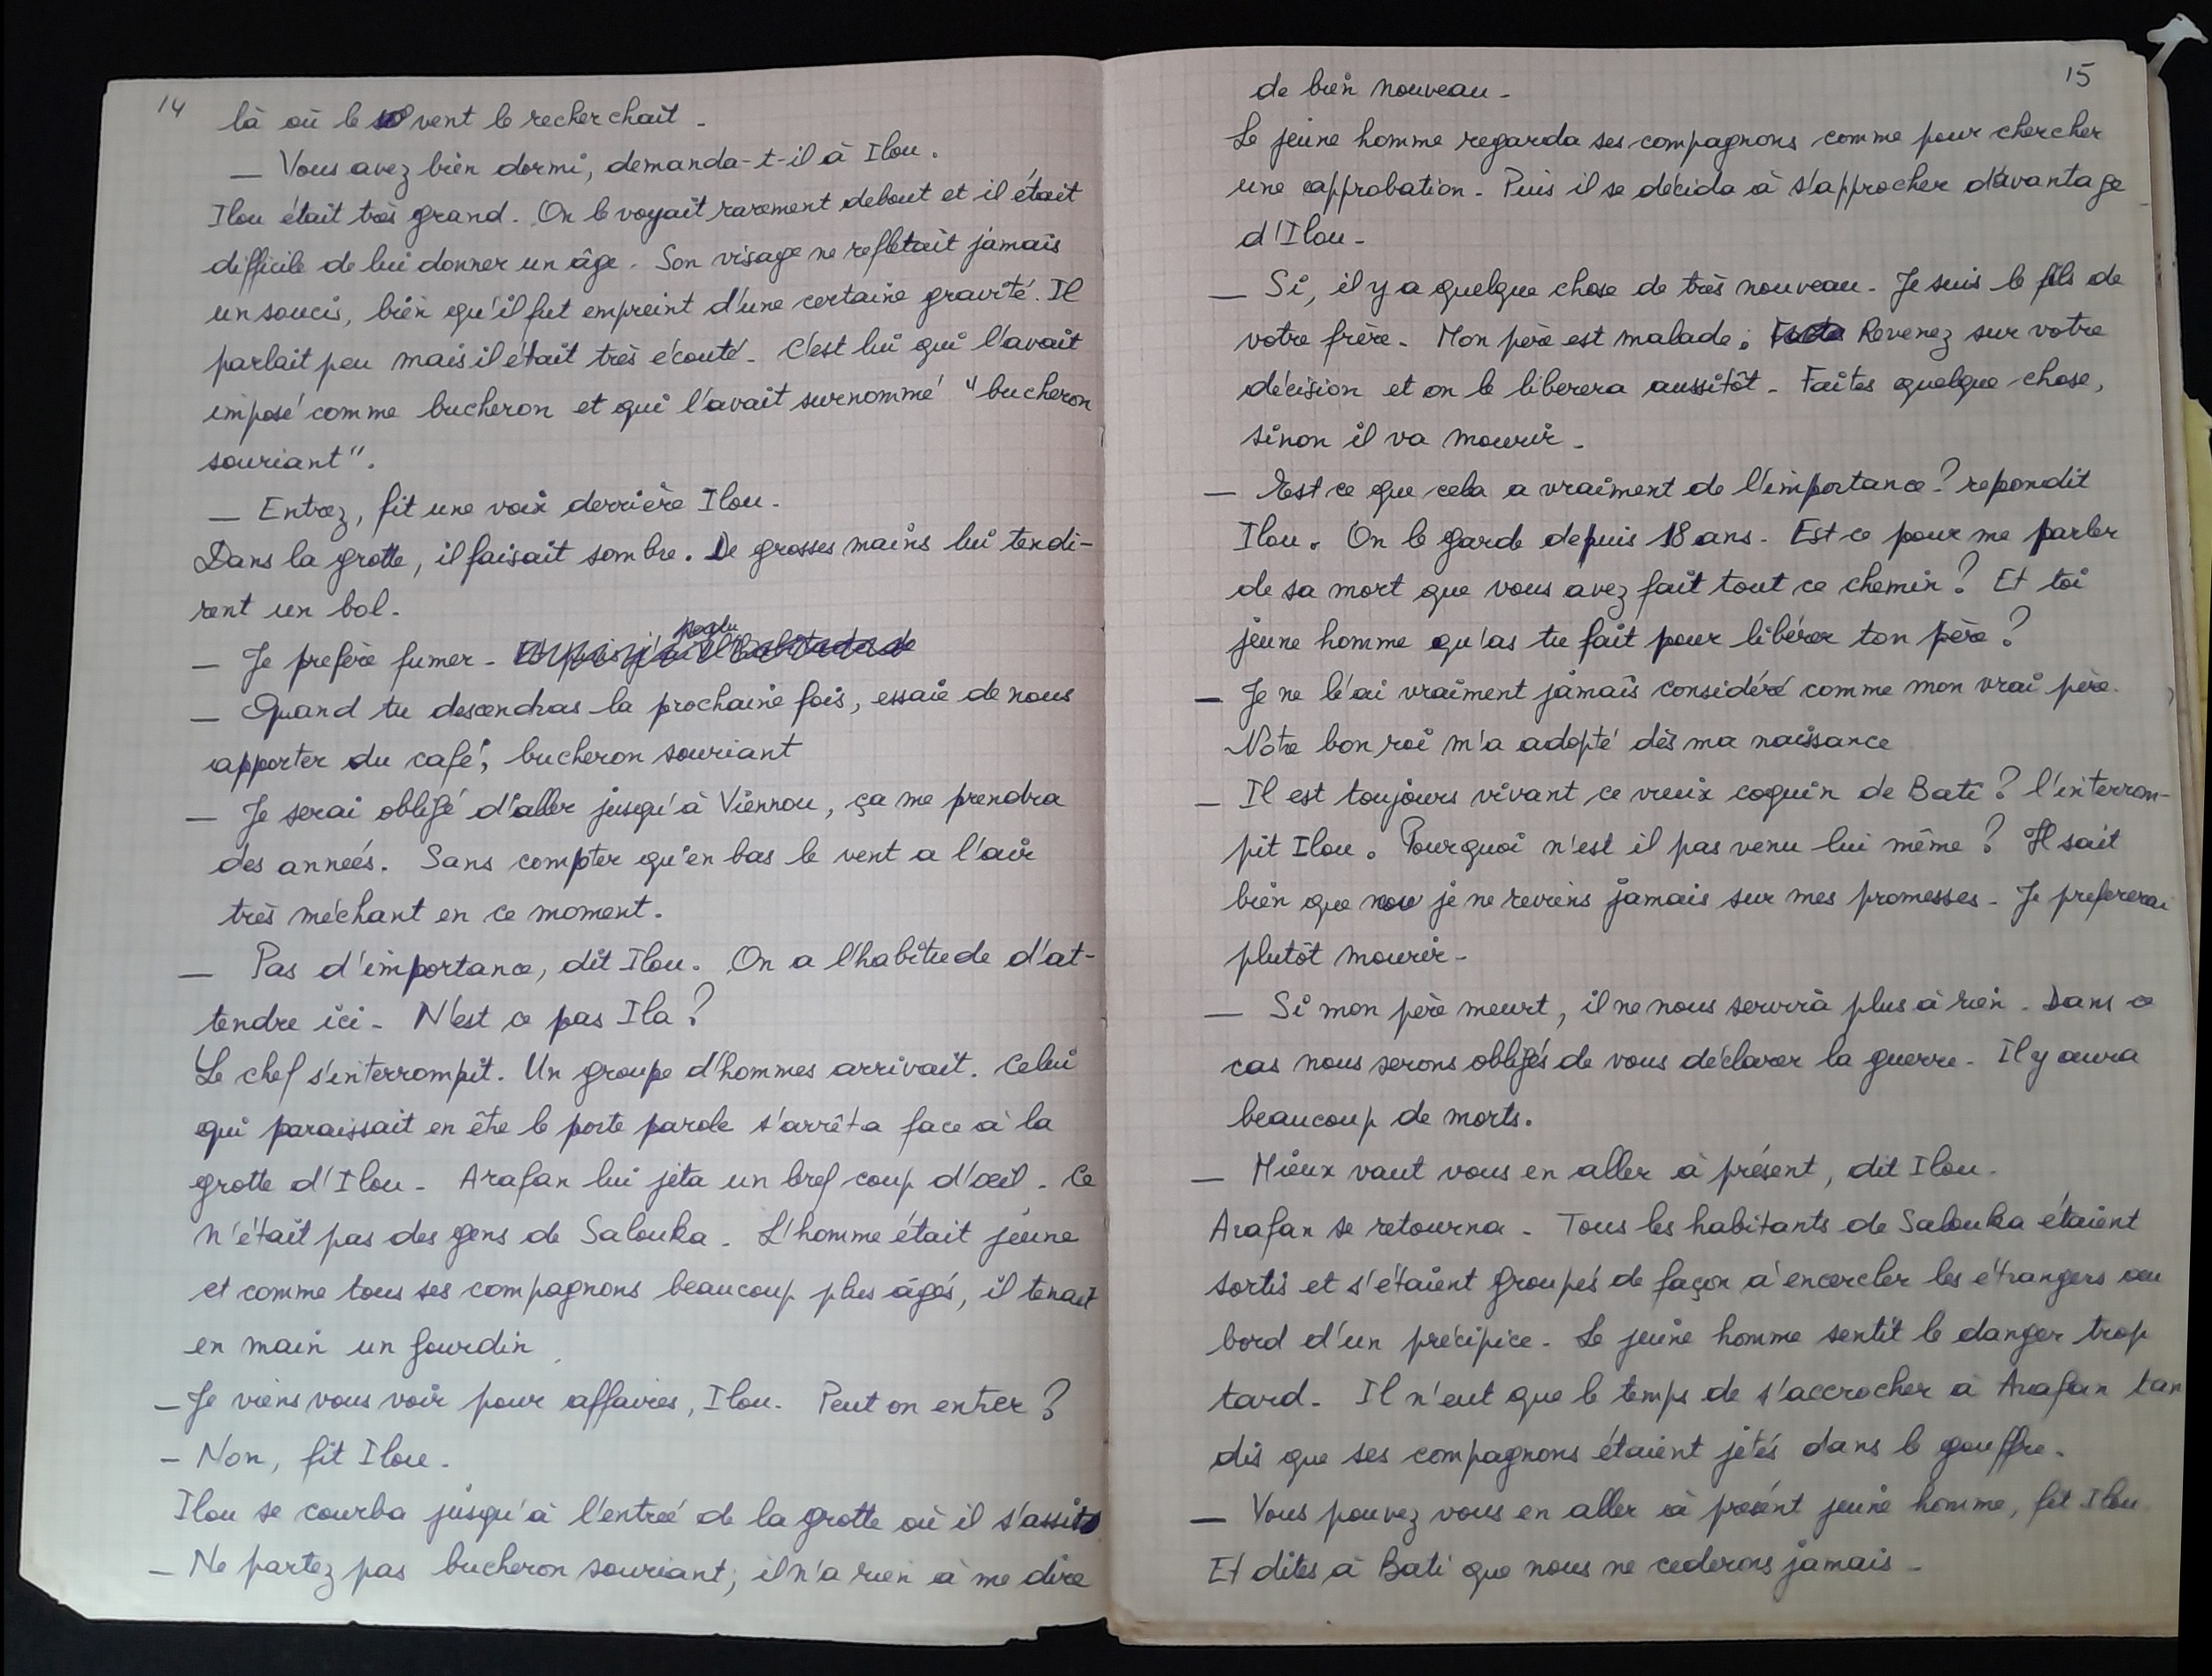 14
là où le vent le recherchait.
— Vous avez bien dormi, demanda-t-il à Ilou.
Ilou était très grand. On le voyait rarement debout et il était
difficile de lui donner un âge. Son visage ne reflétait jamais
un soucis, bien qu'il fut empreint d'une certaine gravité. Il
parlait peu mais il était très écouté. C'est lui qui l'avait
imposé comme bucheron et qui l'avait surnommé "bucheron
souriant".
— Entrez, fit une voix derrière Ilou.
Dans la grotte, il faisait sombre. De grosses mains lui tendi-
rent un bol.
— Je prefère fumer.
— Quand tu descendras la prochaine fois, essaie de nous
apporter du café, bucheron souriant
— Je serai obligé d'aller jusqu'à Viennou, ça me prendra
des années. Sans compter qu'en bas le vent a l'air
très méchant en ce moment.
— Pas d'importance, dit Ilou. On a l'habitude d'at-
tendre ici. N'est ce pas Ila?
Le chef s'interrompit. Un groupe d'hommes arrivait. Celui
qui paraissait en être le porte parole s'arrêta face à la
grotte d'Ilou. Arafan lui jeta un bref coup d'œil. Ce
n'était pas des gens de Salouka. L'homme était jeune
et comme tous ses compagnons beaucoup plus âgés, il tenait
en main un gourdin
— Je viens vous voir pour affaires, Ilou. Peut on entrer?
— Non, fit Ilou.
Ilou se courba jusqu'à l'entrée de la grotte où il s'assit
— Ne partez pas bucheron souriant, il n'a rien à me dire
15
de bien nouveau.
Le jeune homme regarda ses compagnons comme pour chercher
une approbation. Puis il se décida à s'approcher d'avantage
d'Ilou.
— Si, il y a quelque chose de très nouveau. Je suis le fils de
votre frère. Mon père est malade. Revenez sur votre
décision et on le liberera aussitôt. Faites quelque chose,
sinon il va mourir.
— Est ce que cela a vraiment de l'importance? repondit
Ilou. On le garde depuis 18 ans. Est ce pour me parler
de sa mort que vous avez fait tout ce chemin? Et toi
jeune homme qu'as tu fait pour libérer ton père?
— Je ne l'ai vraiment jamais considéré comme mon vrai père.
Notre bon roi m'a adopté dès ma naissance
— Il est toujours vivant ce vieux coquin de Bati? l'interrom-
pit Ilou. Pourquoi n'est il pas venu lui même? Il sait
bien que je ne reviens jamais sur mes promesses. Je prefererai
plutôt mourir.
— Si mon père meurt, il ne nous servira plus à rien. Dans ce
cas nous serons obligés de vous déclarer la guerre. Il y aura
beaucoup de morts.
— Mieux vaut vous en aller à présent, dit Ilou.
Arafan se retourna. Tous les habitants de Salouka étaient
sortis et s'étaient groupés de façon à encercler les étrangers au
bord d'un précipice. Le jeune homme sentit le danger trop
tard. Il n'eut que le temps de s'accrocher à Arafan tan
dis que ses compagnons étaient jetés dans le gouffre.
— Vous pouvez vous en aller à présent jeune homme, fit Ilou.
Et dites à Bati que nous ne cederons jamais.